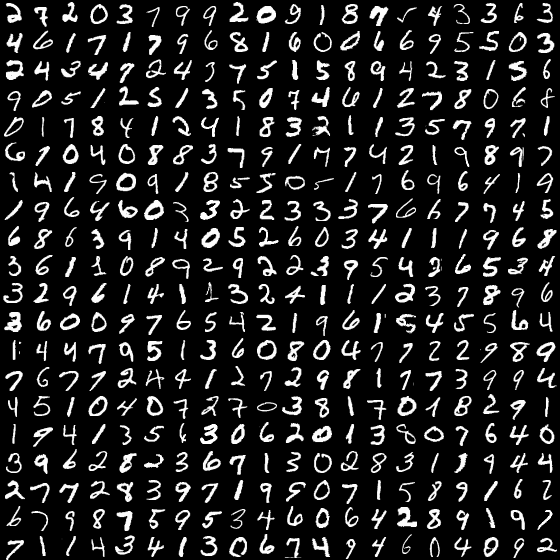 2 7 2 0 3 7 9 9 2 0 9 1 8 7 5 4 3 3 6 3
4 6 1 7 1 7 9 6 8 1 6 0 0 6 6 9 5 5 0 3
2 4 3 4 7 2 4 3 7 5 1 5 8 9 4 2 3 1 5 6
9 0 5 1 2 5 1 3 5 0 7 4 6 1 2 7 8 0 6 8
0 1 7 8 4 1 2 4 1 8 3 2 1 1 3 5 7 9 7 1
6 7 0 4 0 8 8 3 7 9 1 7 7 4 2 1 9 8 9 7
1 4 1 9 0 9 1 8 5 5 0 5 1 7 6 9 6 4 1 9
1 9 6 4 6 0 3 3 2 2 3 3 3 7 6 6 7 7 4 5
6 8 6 3 9 1 4 0 5 2 6 0 3 4 1 1 1 9 6 8
3 6 1 1 0 8 9 2 9 2 2 3 9 5 4 2 6 5 3 4
3 2 9 6 1 4 1 1 3 2 4 1 1 1 2 3 7 8 9 6
3 6 0 0 9 7 6 5 4 2 1 9 6 1 5 4 5 5 6 4
1 4 4 7 9 5 1 3 6 0 8 0 4 7 7 2 2 9 8 9
7 6 7 7 2 4 4 1 2 7 2 9 8 1 7 7 3 9 9 4
4 5 1 0 4 0 7 2 7 0 3 8 1 7 0 1 8 2 9 1
1 9 4 1 3 5 6 3 0 6 2 0 1 3 8 0 7 6 4 0
3 9 6 2 8 2 3 6 7 1 3 0 2 8 3 1 1 9 4 4
2 7 7 2 8 3 9 7 1 9 9 0 7 1 5 8 9 1 6 7
6 7 9 8 7 5 9 5 3 4 6 0 6 4 2 8 9 1 9 7
7 1 1 4 3 4 1 3 0 6 7 4 9 4 6 0 4 0 9 2